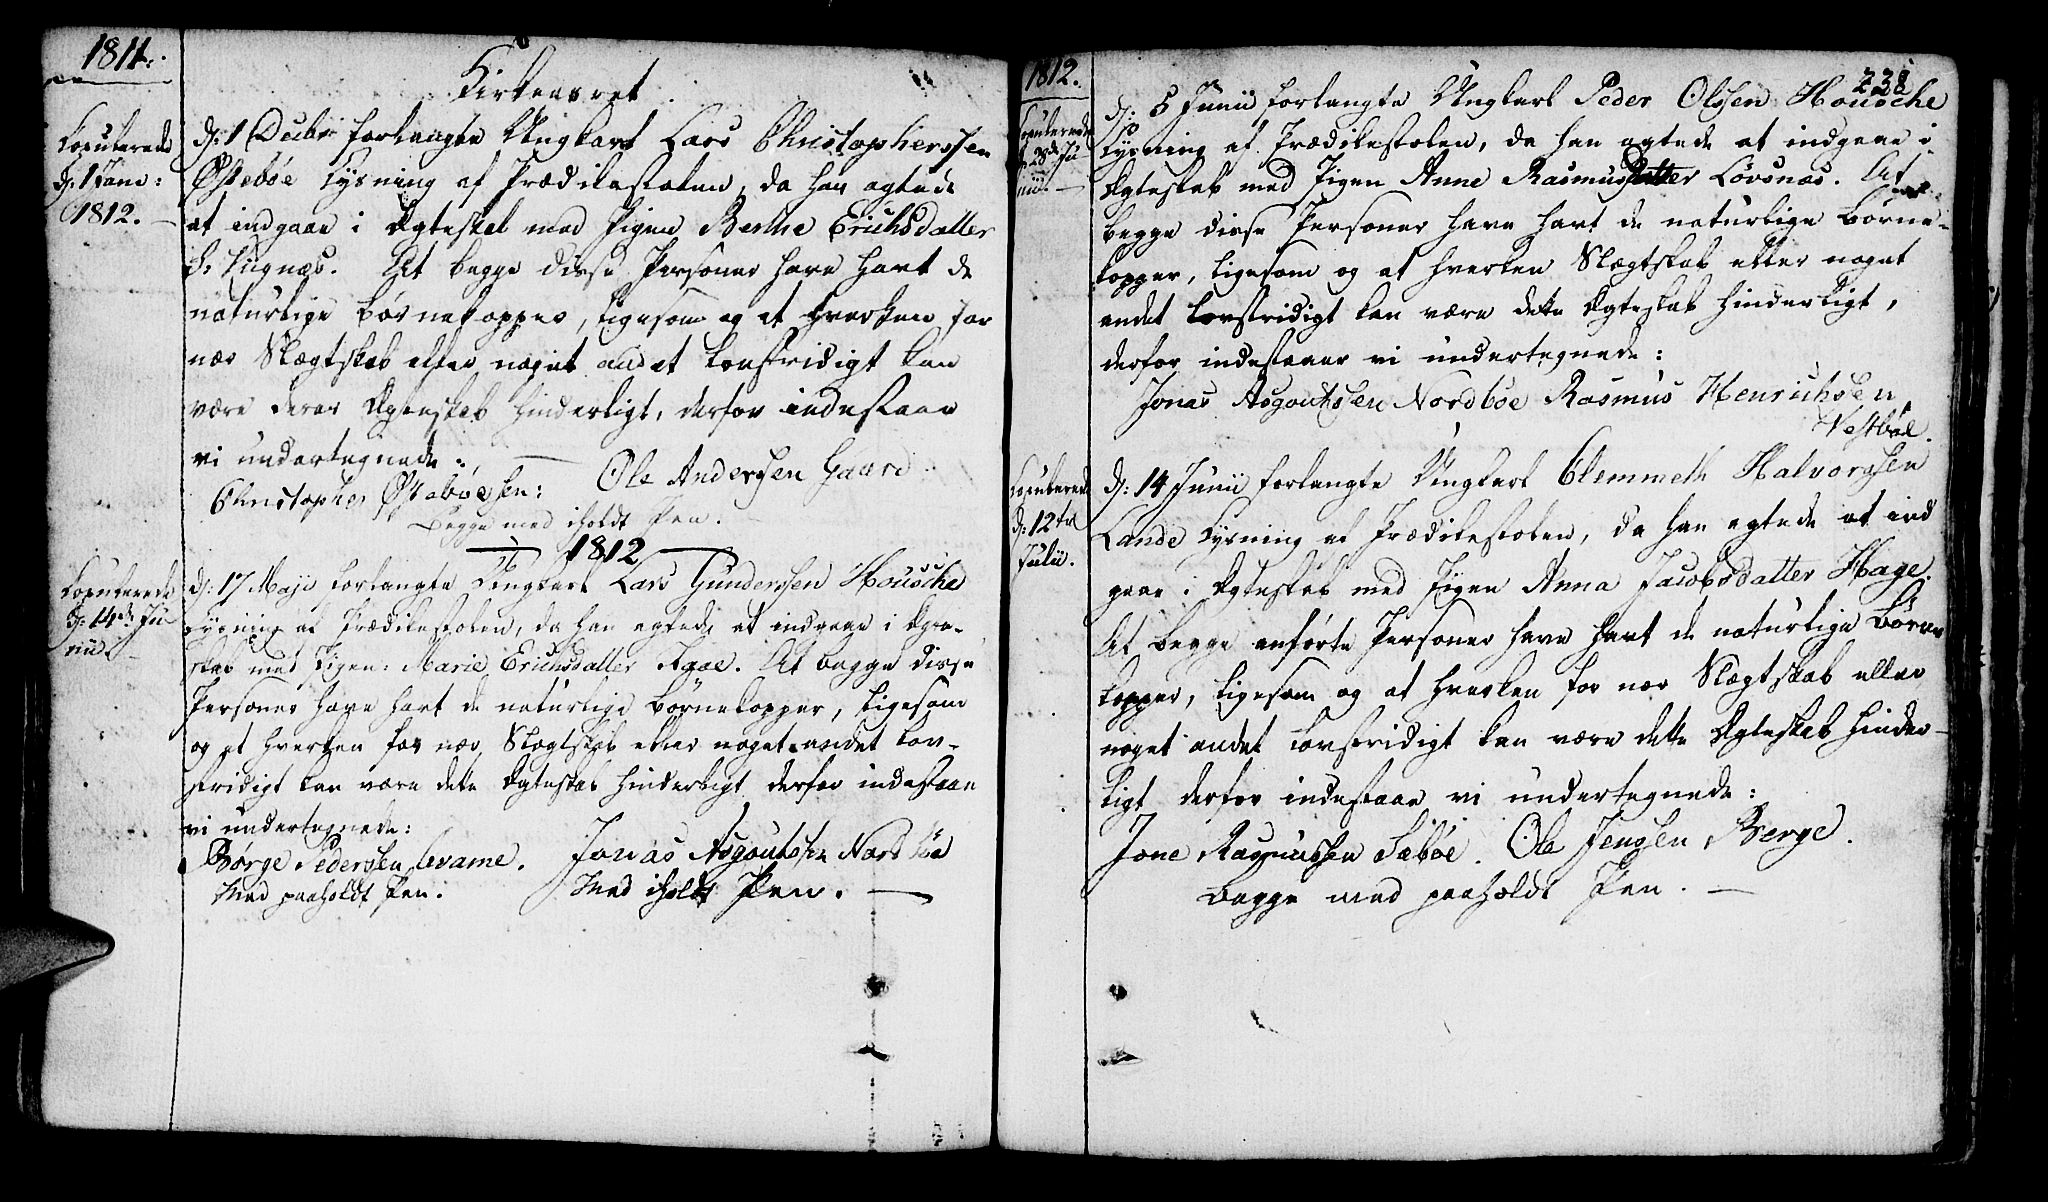 1811.
Kirkeaaret
Copulerede
d: 1 Janu:
1812.
d: 1 Decbr forlangte Ungkarl Lars Christophersen
Østebøe Lysning af Prædikestolen, da han agtede
at indgaae i Ægteskab med Pigen Berthe Erichsdatter
At begge disse Personer have havt de
naturlige Børnekopper, ligesom og at hverken for
nær Slægtskab eller noget andet lovstridigt kan
være deres Ægteskab hinderligt, derfor indestaae
vi undertegnede:
Christopher Østebøesen: Ole Andersen Gaard
Begge med iholdt Pen.
1812
Copulerede
d: 14de Ju-
nii.
d: 17 Maji forlangte Ungkarl Lars Gundersen Housche
Lysning af Prædikestolen, da han agtede at indgaae i Ægte-
skab med Pigen: Marie Erichsdatter At begge disse
Personer have havt de naturlige Børnekopper, ligesom
og at hverken for nær Slægtskab eller noget andet lov-
stridigt kan være dette Ægteskab hinderligt derfor indestaae
vi undertegnede:
Børge Pedersen Qvame. Jonas Asgoutsen Nordbøe
Med paaholdt Pen. Med iholdt Pen.
1812.
Copulerede
d: 28de Ju-
nii.
d: 5 Junii forlangte Ungkarl Peder Olsen Housche
Lysning af Prædikestolen, da han agtede at indgaae i
Ægteskab med Pigen Anne Rasmusdatter Løvsnæs. At
begge disse Personer have havt de naturlige Børne-
kopper, ligesom og at hverken Slægtskab eller noget
andet lovstridigt kan være dette Ægteskab hinderligt,
derfor indestaaer vi undertegnede:
Jonas Asgoutsen Nordbøe Rasmus Henrichsen
Vestbøe.
Copulerede
d: 12te
Julii.
d: 14 Junii forlangte Ungkarl Clemmeth Halvorsen
Lande Lysning af Prædikestolen, da han agtede at ind
gaae i Ægteskab med Pigen Anna Jacobsdatter Hage.
At begge anførte Personer have havt de naturlige Børne
kopper, ligesom og at hverken for nær Slægtskab eller
noget andet lovstridigt kan være dette Ægteskab hinder-
ligt derfor indestaae vi undertegnede:
Jone Rasmussen Sæbøe. Ole Jensen Berge.
Begge med paaholdt Pen.